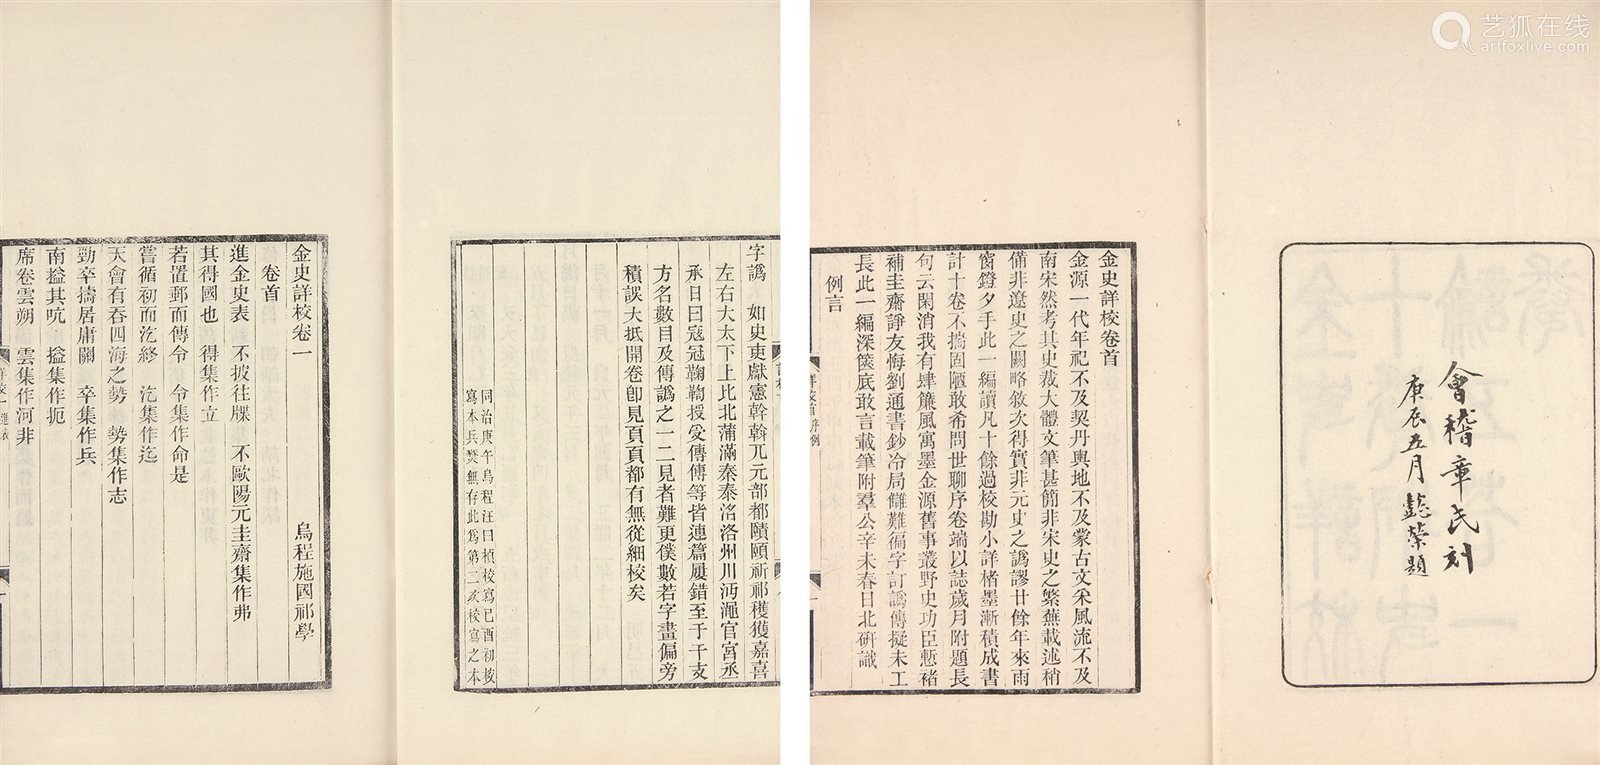 艺狐在线
artfoxlive.com
會稽章氏刻
庚辰五月懿榮題
金史詳校卷首
金源一代年祀不及契丹輿地不及蒙古文采風流不及
南宋然考其史裁大體文筆甚簡非宋史之繁蕪載述稍
備非遼史之闕略敘次得實非元史之譌謬廿餘年來雨
窗鐙夕手此一編讀凡十餘過校勘小詳楮墨漸積成書
計十卷不揣固陋敢希問世聊序卷端以誌歲月附題長
句云閑消我有肆簾風寓墨金源舊事叢野史功臣慙褚
補圭齋諍友悔劉通書鈔冷局讎難徧字訂譌傳擬未工
長此一編深篋底敢言載筆附羣公辛未春日北硏識
例言
字譌 如史吏獻憲幹斡兀元部都賾頤祈祁穫獲嘉喜
左右大太下上比北蒲滿秦泰洺洛州川沔澠官宮丞
承日曰寇冠鞠鞫授受傅傳等皆連篇屢錯至于干支
方名數目及傳譌之一二見者難更僕數若字畫偏旁
積誤大抵開卷卽見頁頁都有無從細校矣
同治庚午烏程汪曰楨校寫已酉初校
寫本兵燹無存此爲第二次校寫之本
金史詳校卷一
烏程施國祁學
卷首
進金史表 不披往牒 不歐陽元圭齋集作弗
其得國也 得集作立
若置郵而傳令 令集作命是
嘗循初而汔終 汔集作迄
天會有吞四海之勢 勢集作志
勁卒擣居庸關 卒集作兵
南搤其吭 搤集作扼
席卷雲朔 雲集作河非